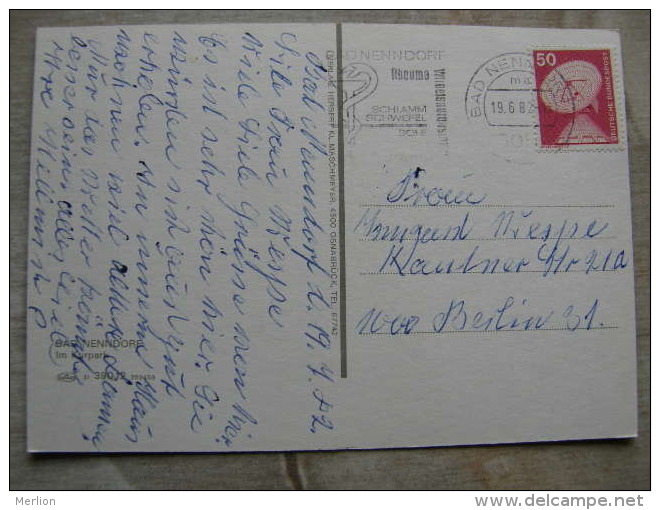 Bad Nenndorf d. 19.4.82.
Liebe Frau Weppe
Viele liebe Grüsse von hier.
Es ist sehr schön hier. Sie
würden sich gut
erholen. An unserm Haus
wird nun viel
Nur das Wetter könnte
besser sein. Alles Liebe
Ihre
BAD NENNDORF
Im Kurpark
39012
VERLAG HERBERT KL. MASCHMEYER, 4500 OSNABRÜCK, TEL.
BAD NENNDORF
Rheuma
SCHLAMM
SCHWEFEL
SOLE
BAD NENN
19.6.82
50
DEUTSCHE BUNDESPOST
Frau
Irmgard Weppe
Kautner Str 21a
1000 Berlin 31.
Merlion
www.delcampe.net